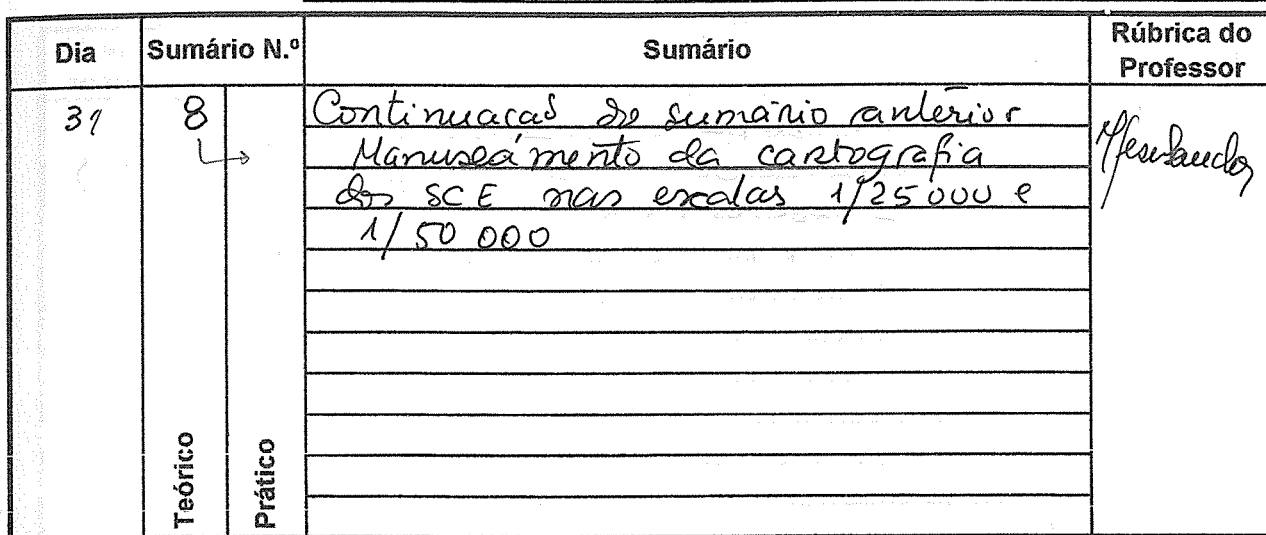 Dia Sumário N.º Sumário Rúbrica do Professor
31 8 Continuação do sumário anterior
Manuseamento da cartografia
dos SCE nas escalas 1/25 000 e
1/50 000
Teórico
Prático